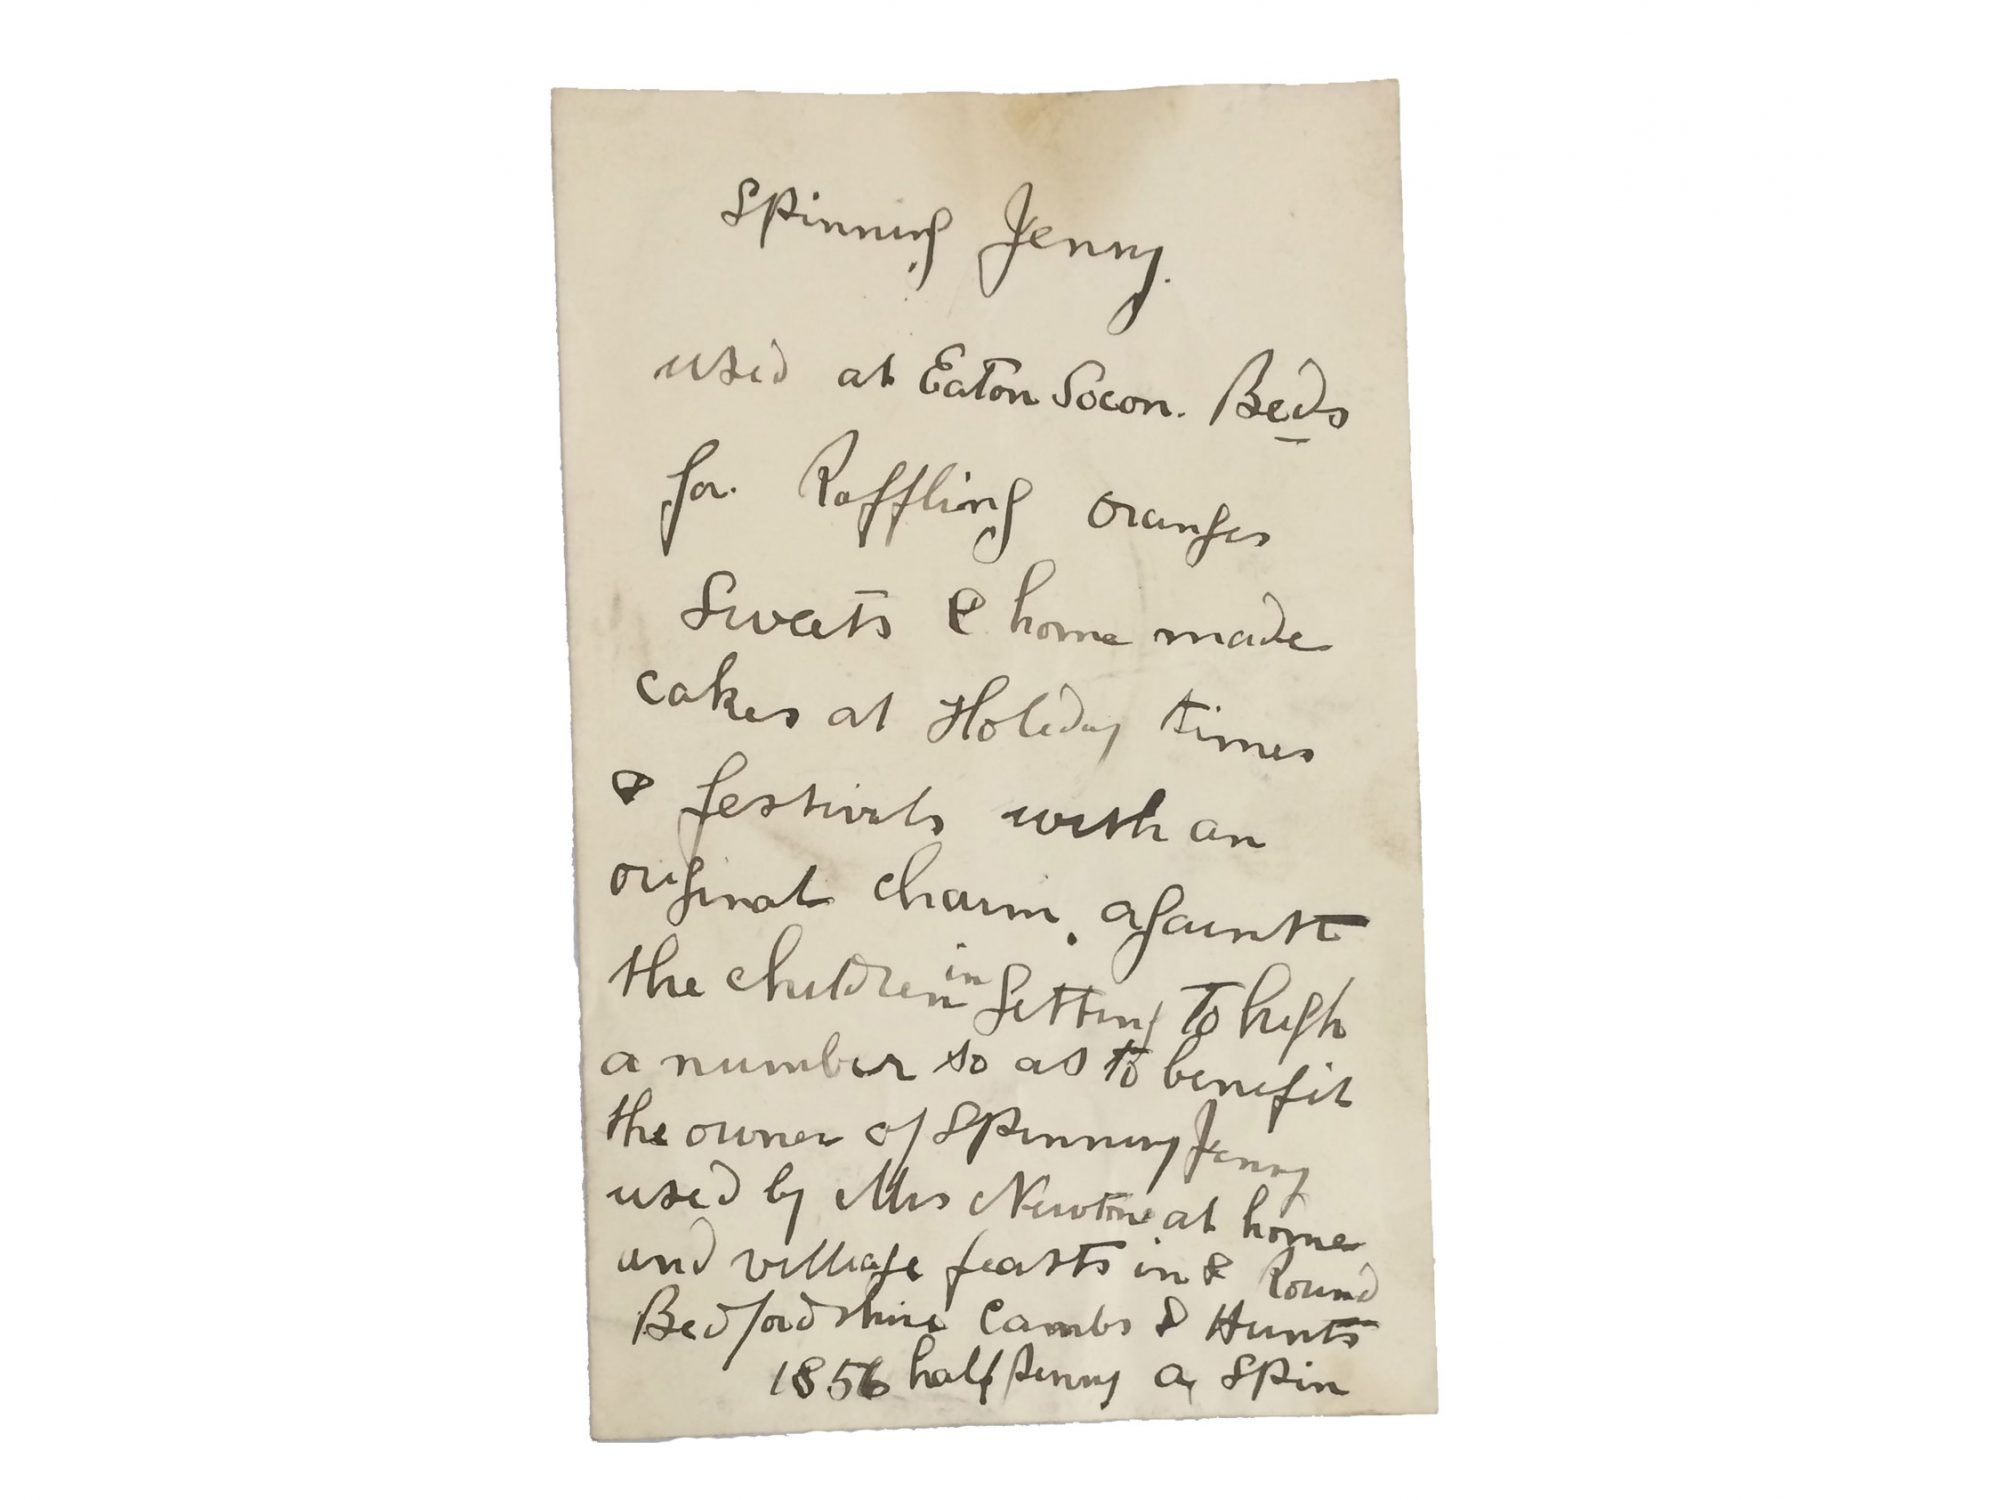 Spinning Jenny.
used at Eaton Socon. Beds
for Raffling oranges
Sweets & home made
cakes at Holiday times
& festivals with an
original charm. against
the children in getting To high
a number so as to benefit
the owner of Spinning Jenny
used by Mrs Newton at home
and village feasts in & Round
Bedfordshire Cambs & Hunts
1856 half penny a Spin